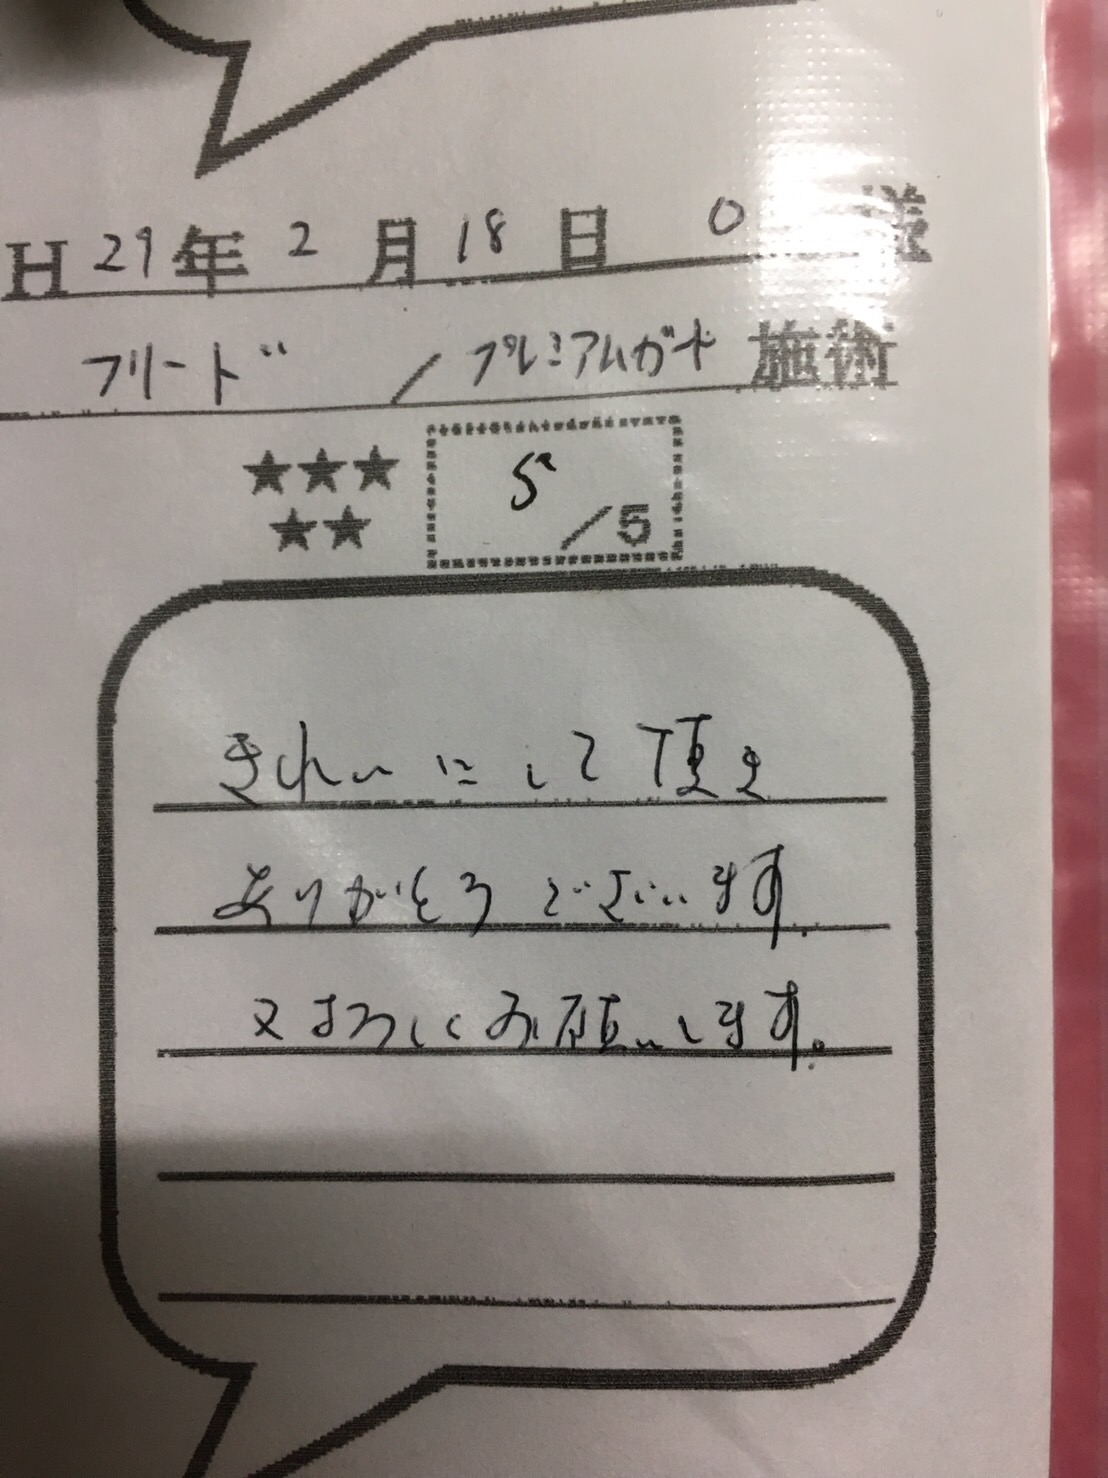 H 29年 2月 18日 O 様
フリード / プレミアムガード 施術
★★★
★★
5 /5
きれいにして頂き
ありがとうございます。
又よろしくお願いします。